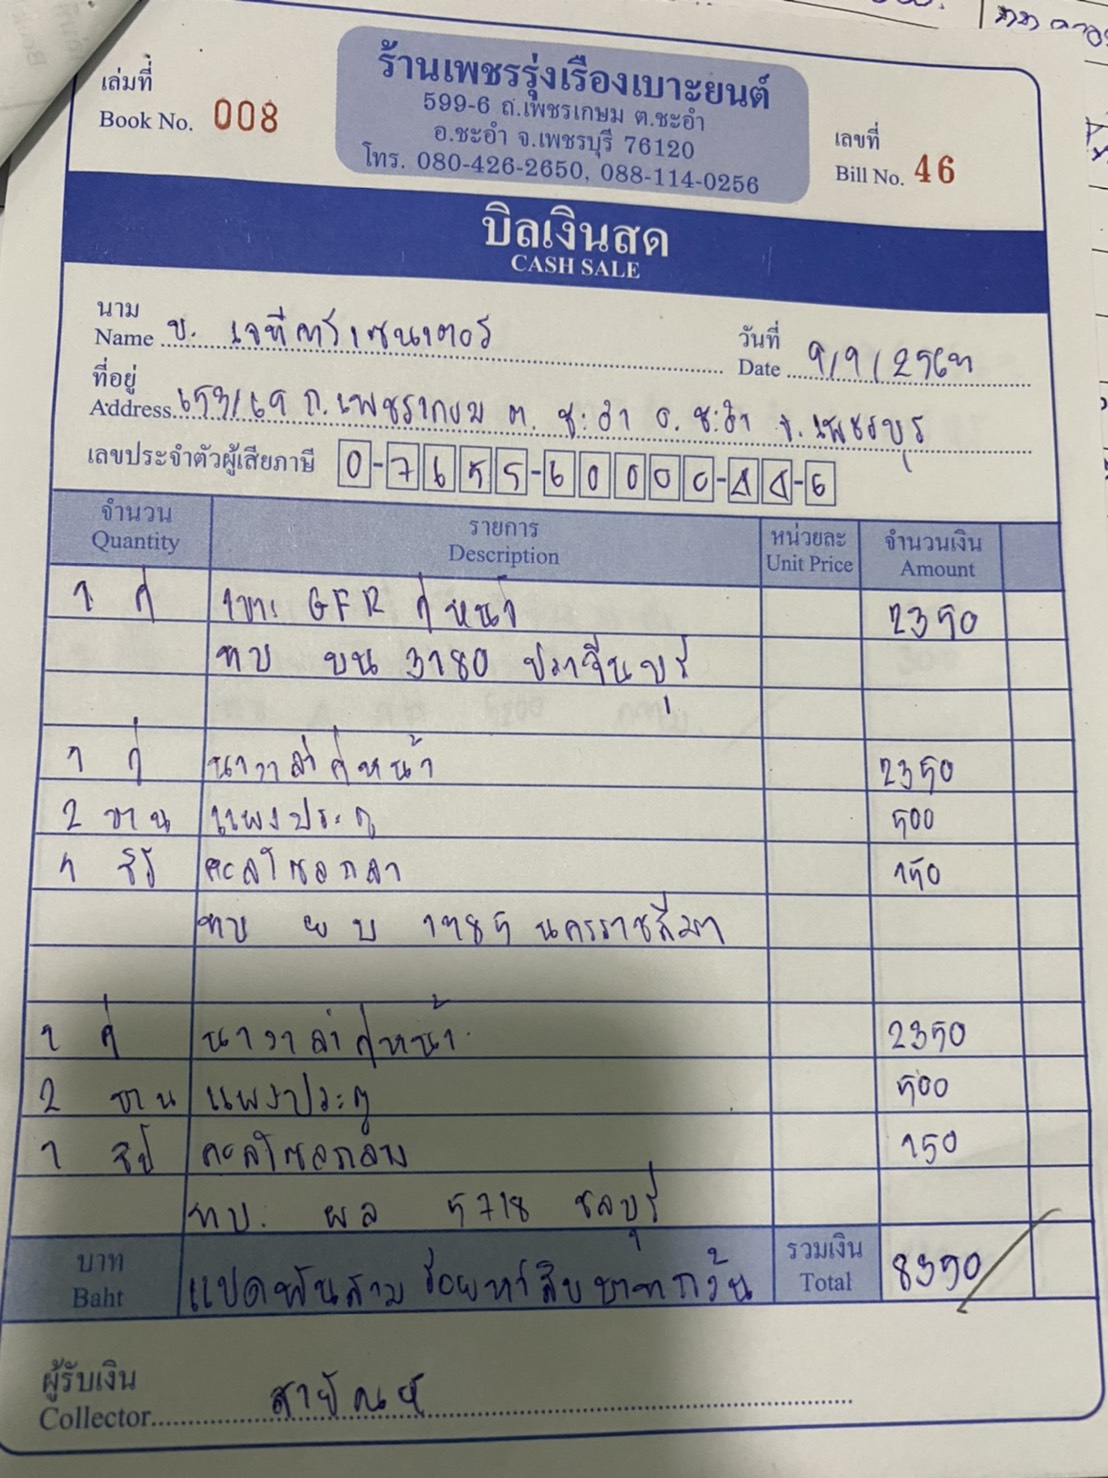 เล่มที่
Book No. 008
ร้านเพชรรุ่งเรืองเบาะยนต์
599-6 ถ.เพชรเกษม ต.ชะอำ
อ.ชะอำ จ.เพชรบุรี 76120
โทร. 080-426-2650, 088-114-0256
เลขที่
Bill No. 46
บิลเงินสด
CASH SALE
นาม
Name บ. เจทีคาร์เซนเตอร์
วันที่
Date 9/9/2567
ที่อยู่
Address 653/69 ถ.เพชรเกษม ต. ชะอำ อ. ชะอำ จ. เพชรบุรี
เลขประจำตัวผู้เสียภาษี 0-7655-60000-44-6
จำนวน รายการ หน่วยละ จำนวนเงิน
Quantity Description Unit Price Amount
1 คู่ เบาะ GFR คู่หน้า 2350
ทบ บน 3180 ปราจีนบุรี
1 คู่ นาวาล่าคู่หน้า 2350
2 บาน แผงประตู 500
1 คอลโซลกลาง 150
ทบ ผบ นครราชสีมา
1 คู่ นาวาล่าคู่หน้า 2350
2 บาน แผงประตู 500
1 คอลโซลกลาง 150
ทบ. ผล 5718 ชลบุรี
บาท แปดพันสามร้อยห้าสิบบาทถ้วน รวมเงิน 8350
Baht Total
ผู้รับเงิน
Collector สายัณห์